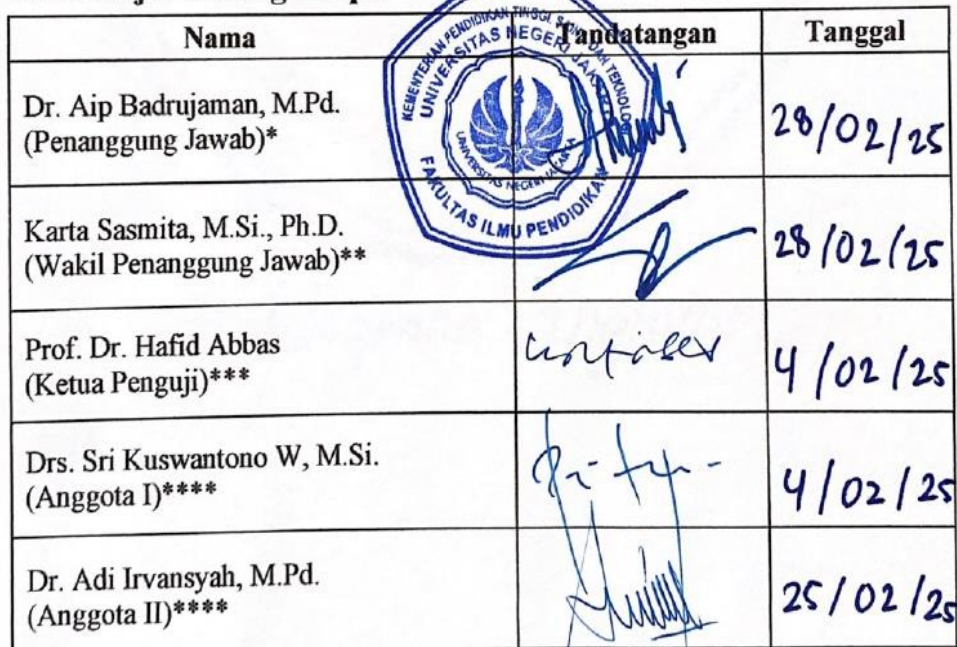 Nama Tandatangan Tanggal
Dr. Aip Badrujaman, M.Pd.
(Penanggung Jawab)*
28/02/25
Karta Sasmita, M.Si., Ph.D.
(Wakil Penanggung Jawab)**
28/02/25
Prof. Dr. Hafid Abbas
(Ketua Penguji)***
4/02/25
Drs. Sri Kuswantono W, M.Si.
(Anggota I)****
4/02/25
Dr. Adi Irvansyah, M.Pd.
(Anggota II)****
25/02/25
KEMENTERIAN PENDIDIKAN TINGGI, SAINS, DAN TEKNOLOGI
UNIVERSITAS NEGERI JAKARTA
UNIVERSITAS NEGERI JAKARTA
FAKULTAS ILMU PENDIDIKAN